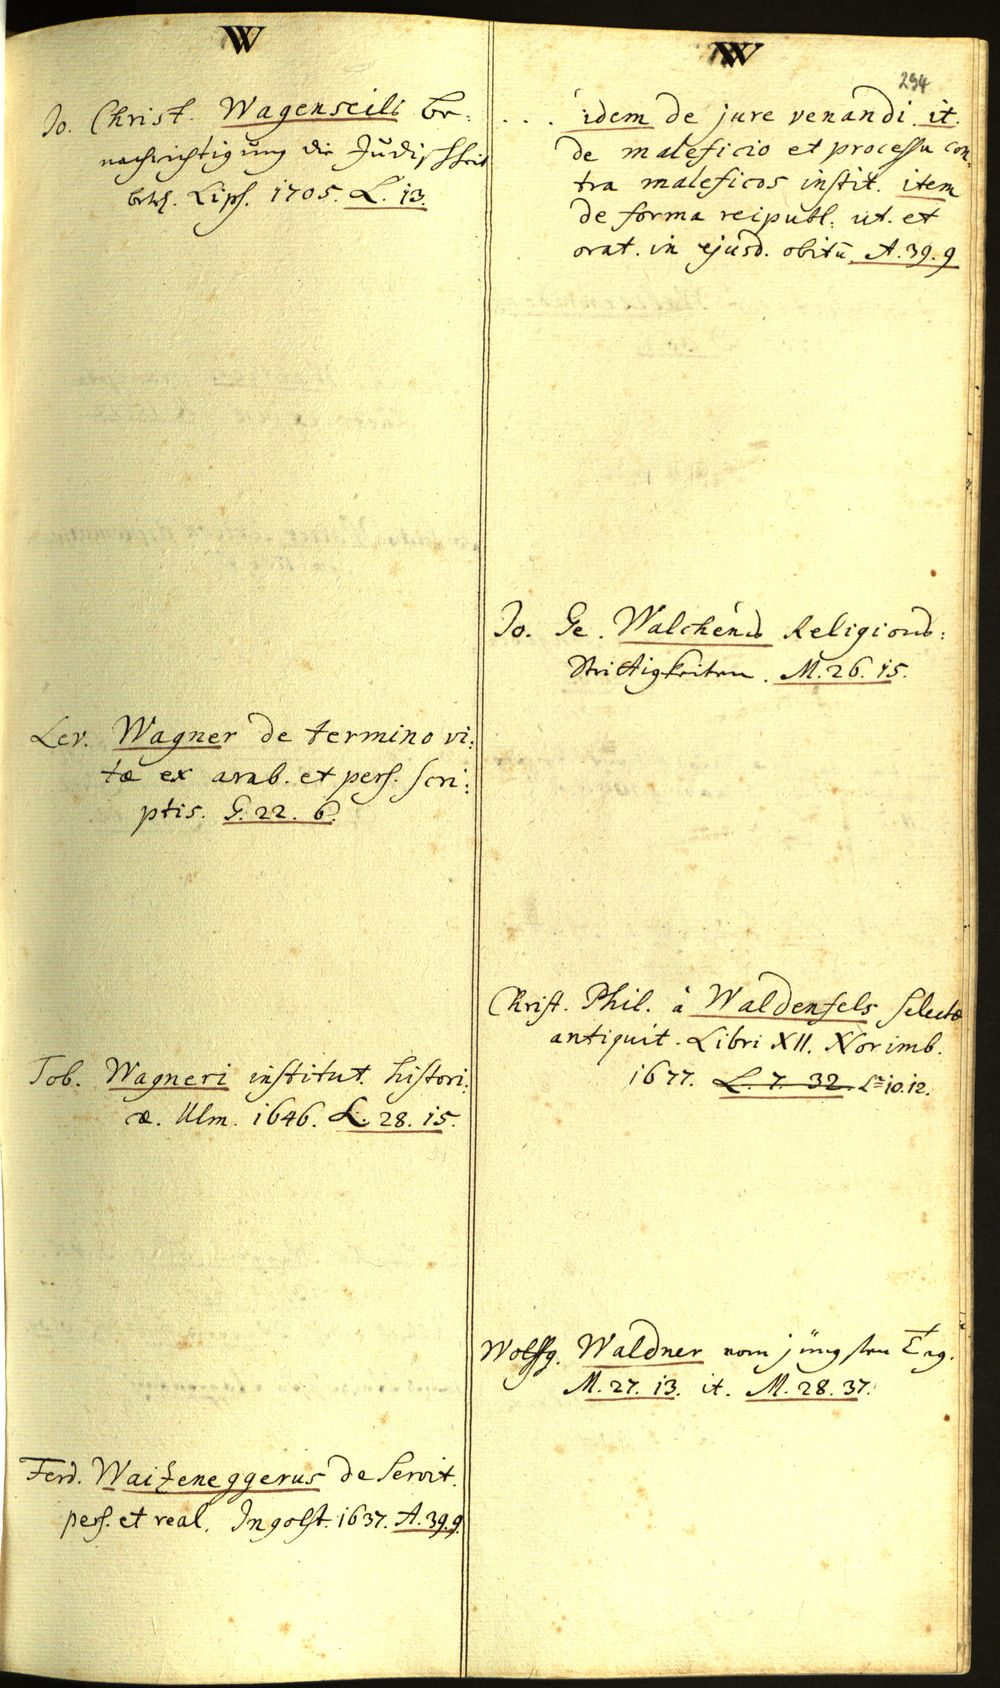 W
Jo. Christ. Wagenseili be-
nachrichtigung die Judischheit
betrf. Lips. 1705. L. 13.
Lev. Wagner de termino vi-
tæ ex arab. et pers. scri-
ptis. G. 22. 6.
Tob. Wagneri institut. histori-
æ. Ulm. 1646. L. 28. 15.
Ferd. Waizeneggerus de servit.
pers. et real. Ingolst. 1637. A. 39.9.
W
294
. . . idem de jure venandi. it.
de maleficio et processu con-
tra maleficos instit. item
de forma reipubl. ut. et
orat. in ejusd. obitū. A. 39. 9
Jo. Ge. Walchens Religions-
Strittigkeiten. M. 26. 15.
Christ. Phil. à Waldenfels Selectæ
antiquit. Libri XII. Norimb.
1677. L. 7. 32. L= 10. 12.
Wolffg. Waldner vom jüngsten Tag.
M. 27. 13. it. M. 28. 37.